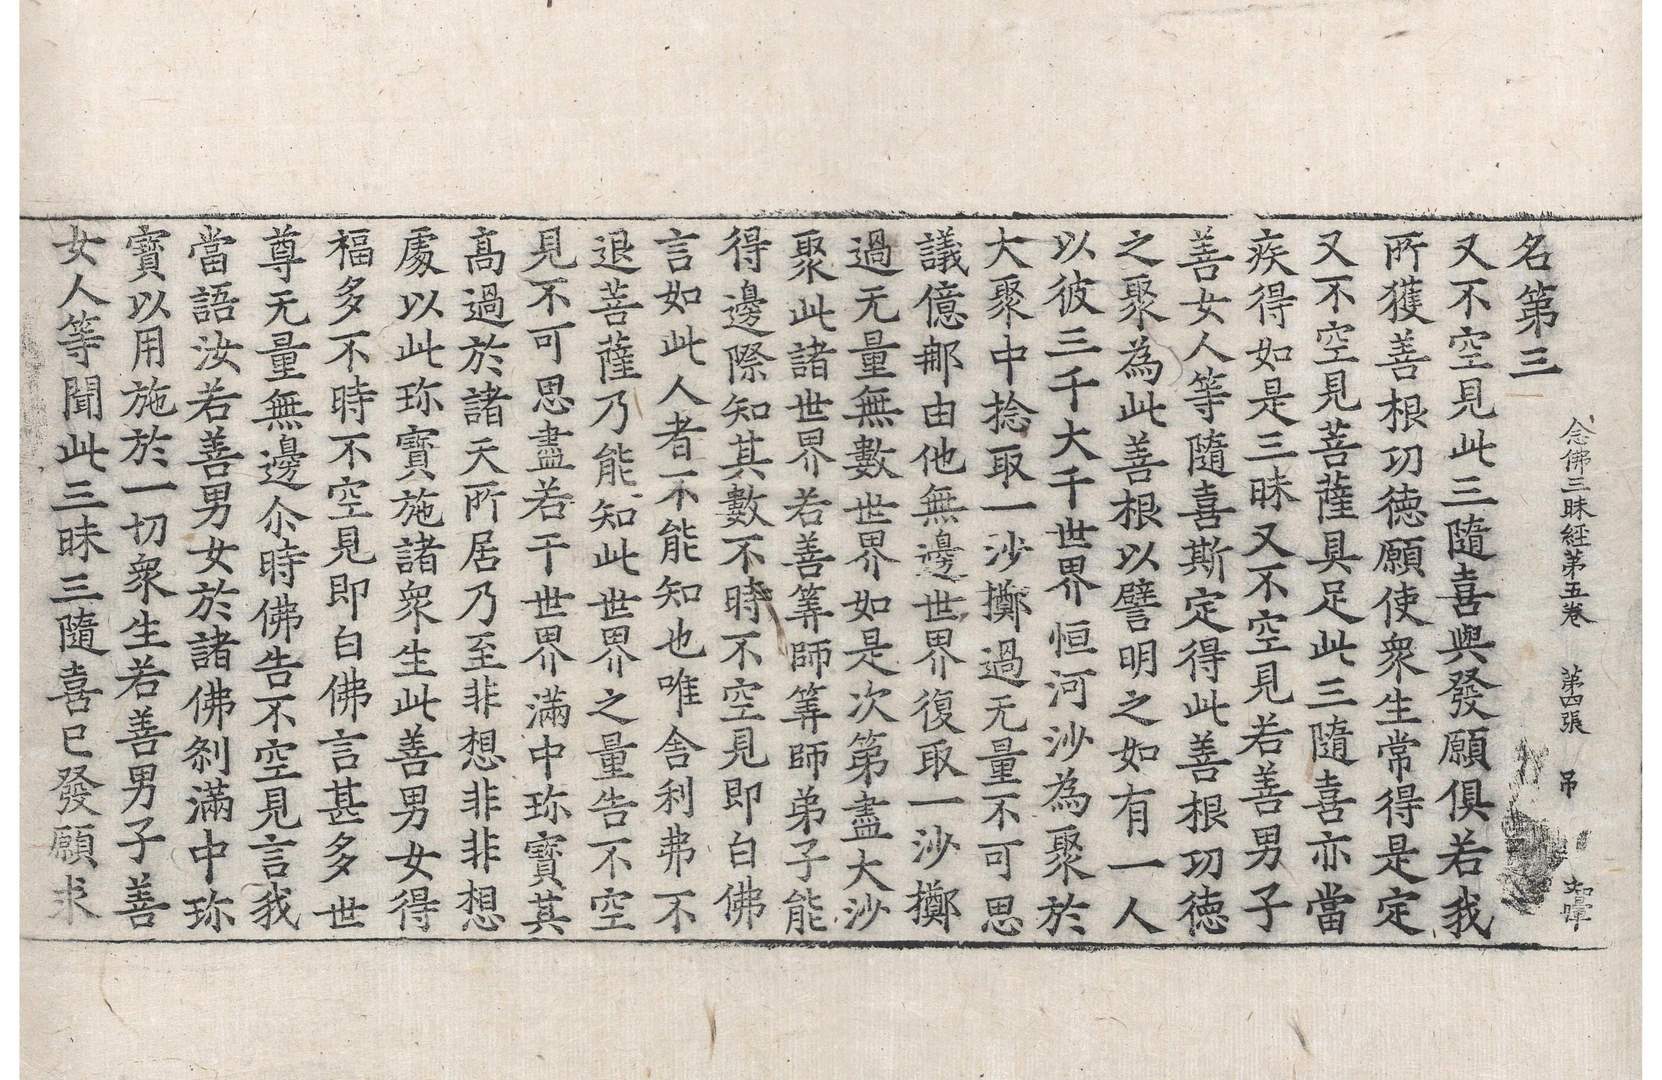 念佛三昧經第五卷　第四張　弔
名第三
又不空見此三隨喜與發願俱若我
所獲善根功德願使衆生常得是定
又不空見菩薩具足此三隨喜亦當
疾得如是三昧又不空見若善男子
善女人等隨喜斯定得此善根功德
之聚為此善根以譬明之如有一人
以彼三千大千世界恒河沙為聚於
大聚中捻取一沙擲過无量不可思
議億𨙻由他無邊世界復取一沙擲
過无量無數世界如是次第盡大沙
聚此諸世界若善筭師筭師弟子能
得邊際知其數不時不空見即白佛
言如此人者不能知也唯舍利弗不
退菩薩乃能知此世界之量告不空
見不可思盡若干世界滿中珎寶其
高過於諸天所居乃至非想非非想
處以此珎寶施諸衆生此善男女得
福多不時不空見即白佛言甚多世
尊无量無邊尒時佛告不空見言我
當語汝若善男女於諸佛刹滿中珎
寶以用施於一切衆生若善男子善
女人等聞此三昧三隨喜已發願求